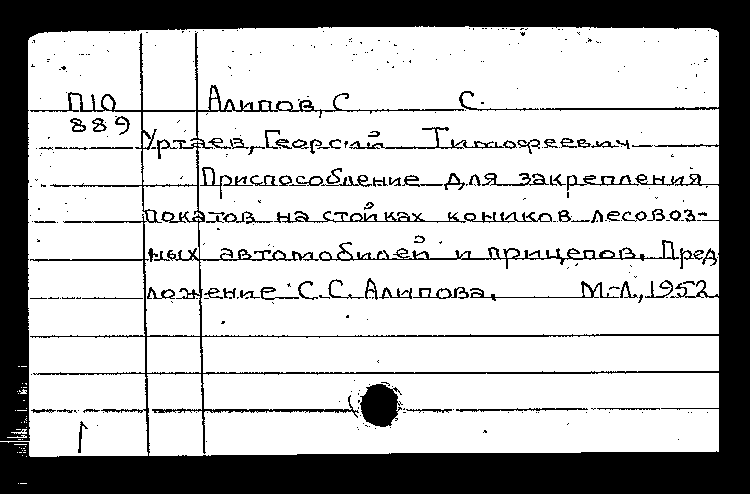 П10 Алипов, С С.
889
Уртаев, Георгий Тимофеевич
Приспособление для закрепления
покатов на стойках коников лесовоз-
ных автомобилей и прицепов. Пред
ложение С.С. Алипова. М.-Л., 1952.
1